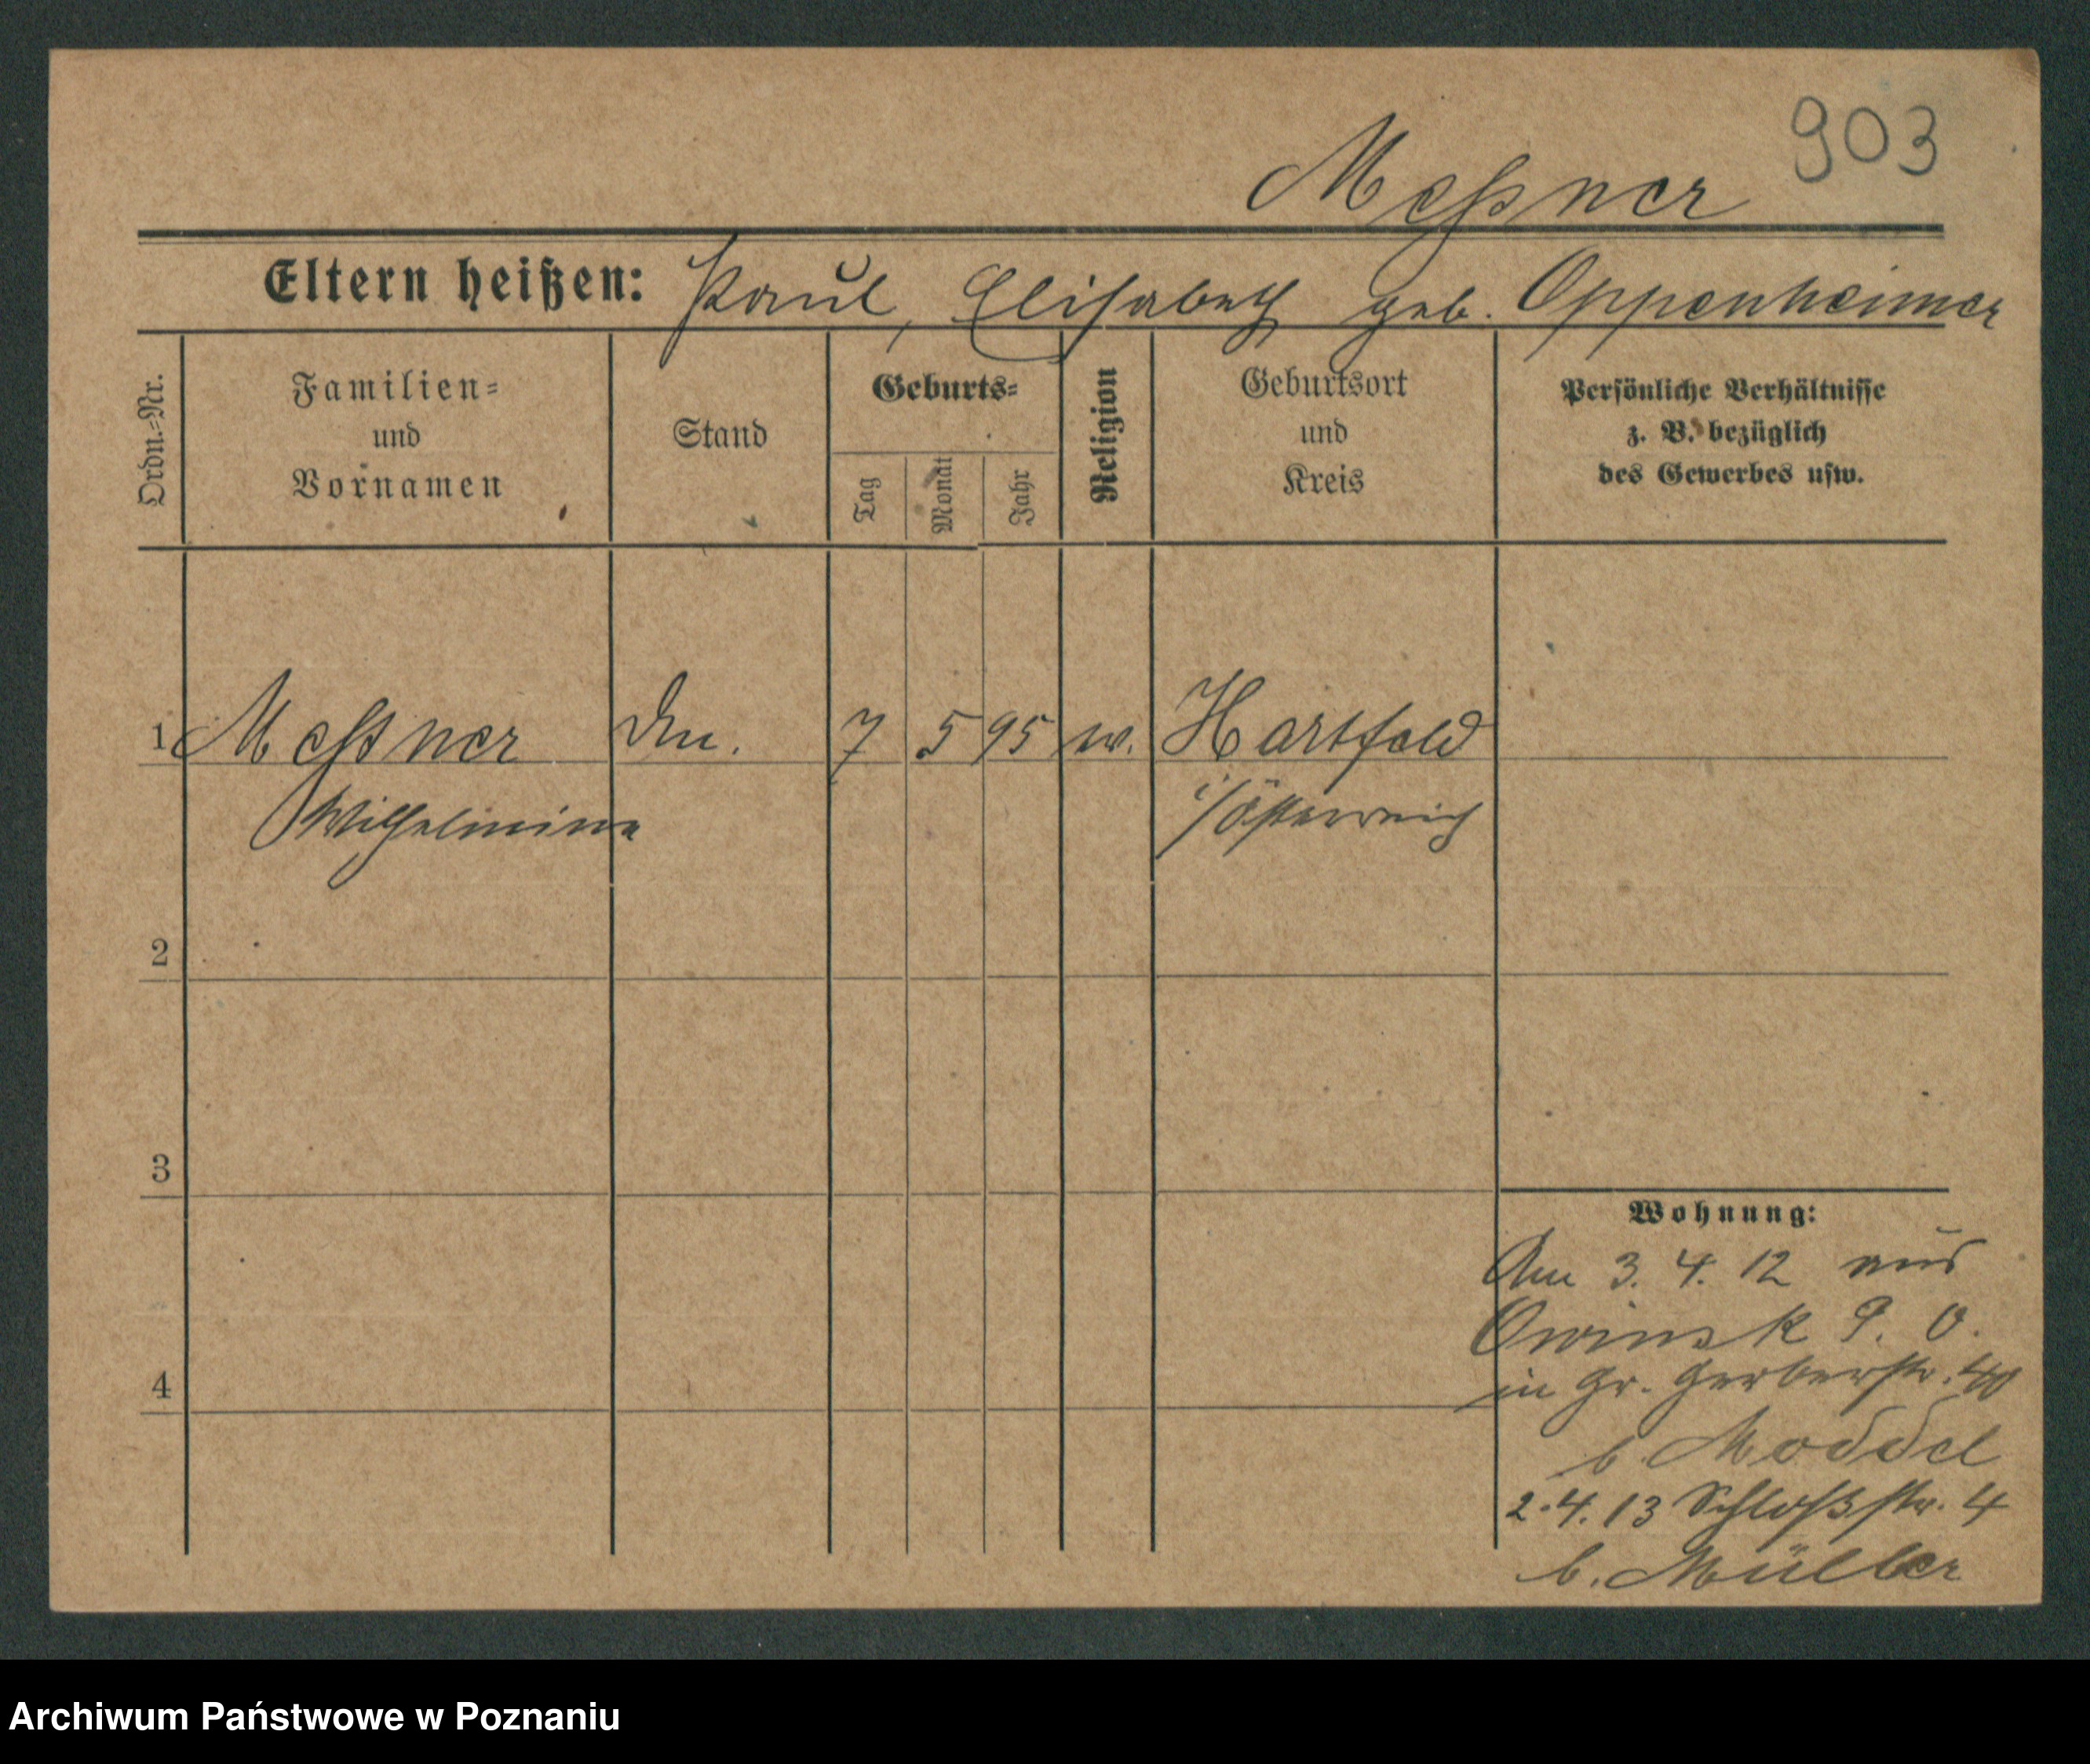 903
Meßner
Eltern heißen: Paul, Elisabeth geb. Oppenheimer
Ordn.=Nr.
Familien=
und
Vornamen
Stand
Geburts=
Tag
Monat
Jahr
Religion
Geburtsort
und
Kreis
Persönliche Verhältnisse
z. B. bezüglich
des Gewerbes usw.
1 Meßner 7 5 95 Hartfeld
Wilhelmine i/Österreich
2
3
4
Wohnung:
Am 3. 4. 12 aus
Owinsk P. O.
in Gr. Gerberstr. 40
b. Moddel
2.4.13 Schloßstr. 4
b. Müller
Archiwum Państwowe w Poznaniu